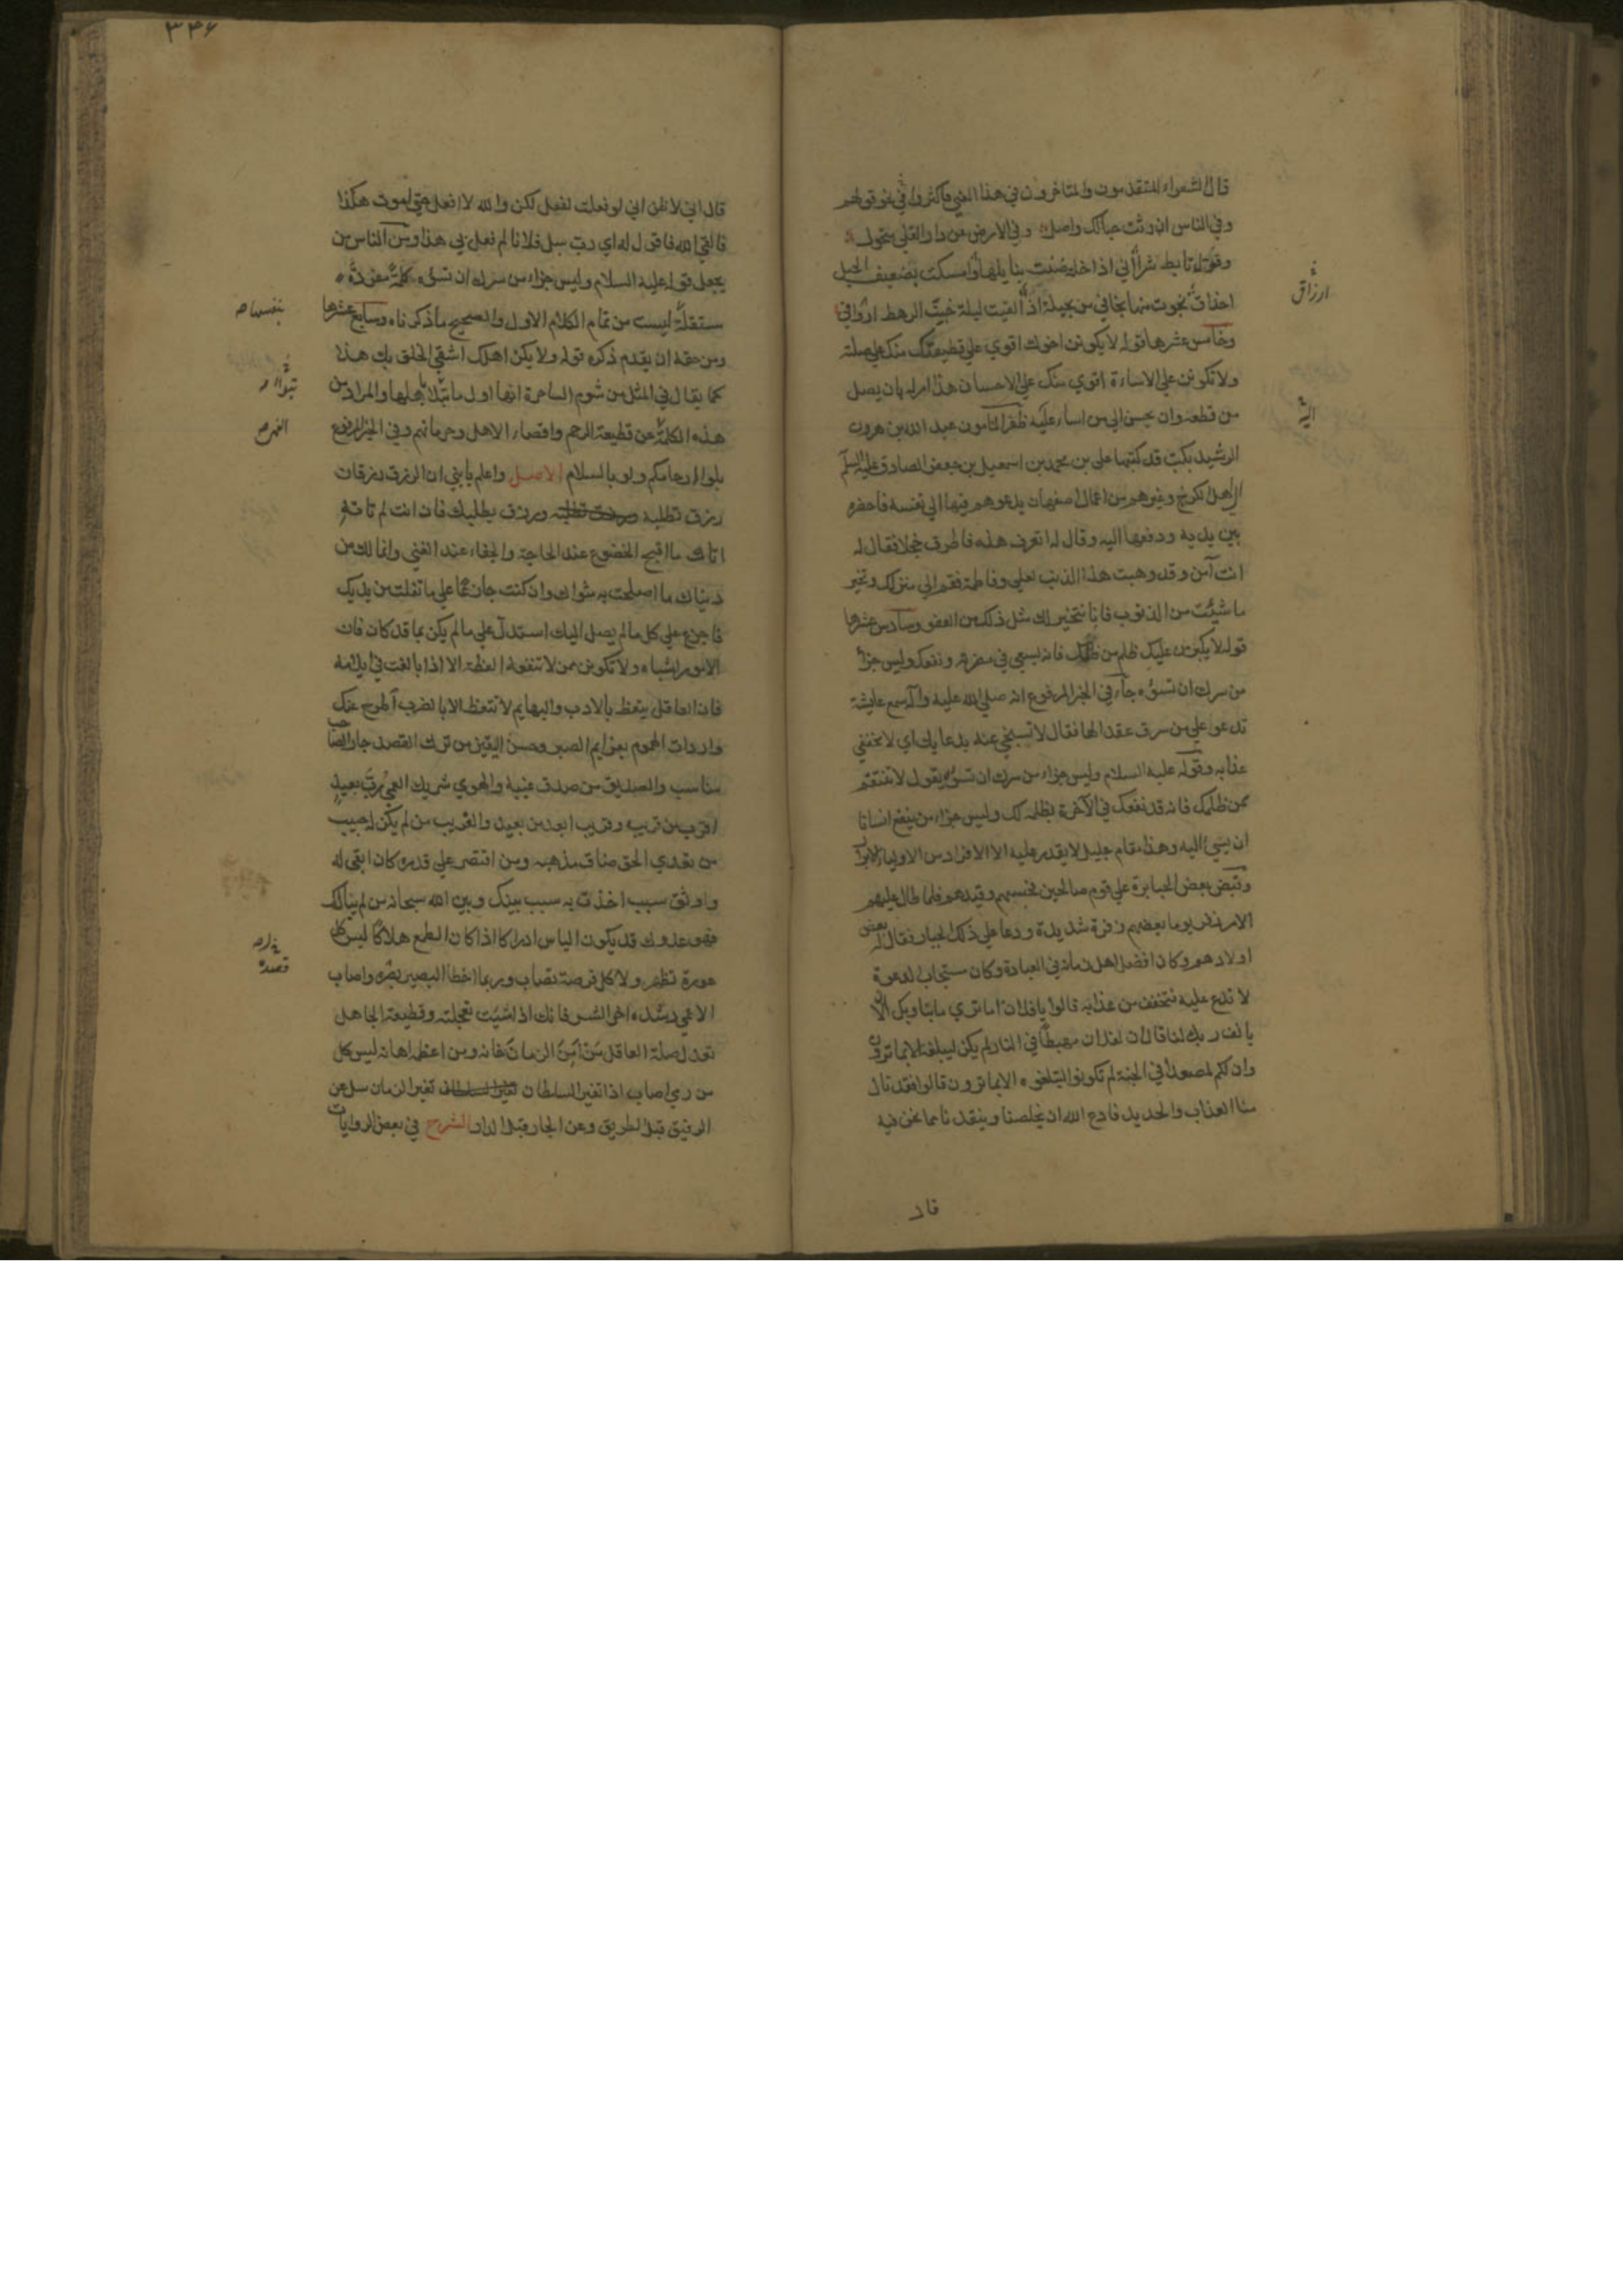 قال الشعراء المتقدمون والمتاخرون في هذا المعنى فاكثروا في نحو قولهم
وفي الناس ان رثت حبالك واصل وفي الارض عن دار القلي متحول
وقول تابط شرا اني اذا خلة ضنت بنايلها وامسكت بضعيف الحبل
احذاق نجوت منها نجائي من بجيلة اذ القيت ليلة خبت الرهط ارواقي
وخامس عشرها قوله لا يكونن اخوك اقوي علي قطيعتك منك علي صلته
ولا تكونن علي الاساءة اقوي منك علي الاحسان هذا امر له بان يصل
من قطعه وان يحسن الي من اساء عليه ظفر المامون عبد الله بن هرون
الرشيد بكتب قد كتبها علي بن محمد بن اسمعيل بن جعفر الصادق عليه السلم
الي اهل الكرخ وغيرهم من اعمال اصفهان يدعوهم فيها الي نفسه فاحضره
بين يديه ودفعها اليه وقال له اتعرف هذه فاطرق خجلا فقال له
انت آمن وقد وهبت هذا الذنب لعلي وفاطمة فقم الي منزلك وتخير
ما شئت من الذنوب فانا نتخير لك مثل ذلك من العفو وسادس عشرها
قوله لا يكبرن عليك ظلم من ظلمك فانه يسعي في مضرته ونفعك وليس جزاء
من سرك ان تسوءه جاء في الخبر المرفوع انه صلي الله عليه وآله سمع عايشة
تدعو علي من سرق عقدا لها فقال لا تسبخي عنه بدعايك اي لا تخففي
عذابه وقوله عليه السلام وليس جزاء من سرك ان تسوءه يقول لا تنتقم
ممن ظلمك فانه قد نفعك في الآخرة بظلمه لك وليس جزاء من ينفع انسانا
ان يسيء اليه وهذا مقام جليل لا يقدر عليه الا الافراد من الاولياء الابرار
وقبض بعض الجبابرة علي قوم صالحين فحبسهم وقيدهم فلما طال عليهم
الامر زفر يوما بعضهم زفرة شديدة ودعا علي ذلك الجبار فقال له بعض
اولادهم وكان افضل اهل زمانه في العبادة وكان مستجاب الدعوة
لا تدع عليه فتخفف من عذابه قالوا يا فلان اما تري ما بنا وبك الا
يانف ربك لنا قال ان لفلان مهبطا في النار لم يكن ليبلغه الا بما ترون
وان لكم لمصعدا في الجنة لم تكونوا لتبلغوه الا بما ترون قالوا فقد نال
منا العذاب والحديد فادع الله ان يخلصنا وينقذنا مما نحن فيه
قال
ارزاق
اليه
٣٤٦
قال اني لا ظن اني لو فعلت لفعل لكن والله لا افعل حتي اموت هكذا
فالقي الله فاقول له اي رب سل فلانا لم فعل بي هذا ومن الناس من
يجعل قوله عليه السلام وليس جزاء من سرك ان تسوءه كلمة مفردة
مستقلة ليست من تمام الكلام الاول والصحيح ما ذكرناه وسابع عشرها
ومن حقه ان يقدم ذكره قوله ولا يكن اهلك اشقي الخلق بك هذا
كما يقال في المثل من شوم الساحرة انها اول ما تبدا باهلها والمراد من
هذه الكلمة عن قطيعة الرحم واقصاء الاهل وحرمانهم وفي الخبر المرفوع
بلوا ارحامكم ولو بالسلام الاصل واعلم يا بني ان الرزق رزقان
رزق تطلبه ورزق يطلبك فان انت لم تاته
اتاك ما اقبح الخضوع عند الحاجة والجفاء عند الغني وانما لك من
دنياك ما اصلحت به مثواك وان كنت جازعا علي ما تفلت من يديك
فاجزع علي كل ما لم يصل اليك استدل علي ما لم يكن بما قد كان فان
الامور اشباه ولا تكونن ممن لا تنفعه العظة الا اذا بالغت في ايلامه
فان العاقل يتعظ بالادب والبهايم لا تتعظ الا بالضرب اطرح عنك
واردات الهموم بعزايم الصبر وحسن اليقين من ترك القصد جار الصاحب
مناسب والصديق من صدق غيبه والهوي شريك العمي رب بعيد
اقرب من قريب وقريب ابعد من بعيد والغريب من لم يكن له حبيب
من تعدي الحق ضاق مذهبه ومن اقتصر علي قدره كان ابقي له
واوثق سبب اخذت به سبب بينك وبين الله سبحانه من لم يبالك
فهو عدوك قد يكون الياس ادراكا اذا كان الطمع هلاكا ليس كل
عورة تظهر ولا كل فرصة تصاب وربما اخطا البصير قصده واصاب
الاعمي رشده اخر الشر فانك اذا شئت تعجلته وقطيعة الجاهل
تعدل صلة العاقل من امن الزمان خانه ومن اعظمه اهانه ليس كل
من رمي اصاب اذا تغير السلطان تغير الزمان سل عن
الرفيق قبل الطريق وعن الجار قبل الدار الشرح في بعض الروايات
بنفسها
النهي
قصده